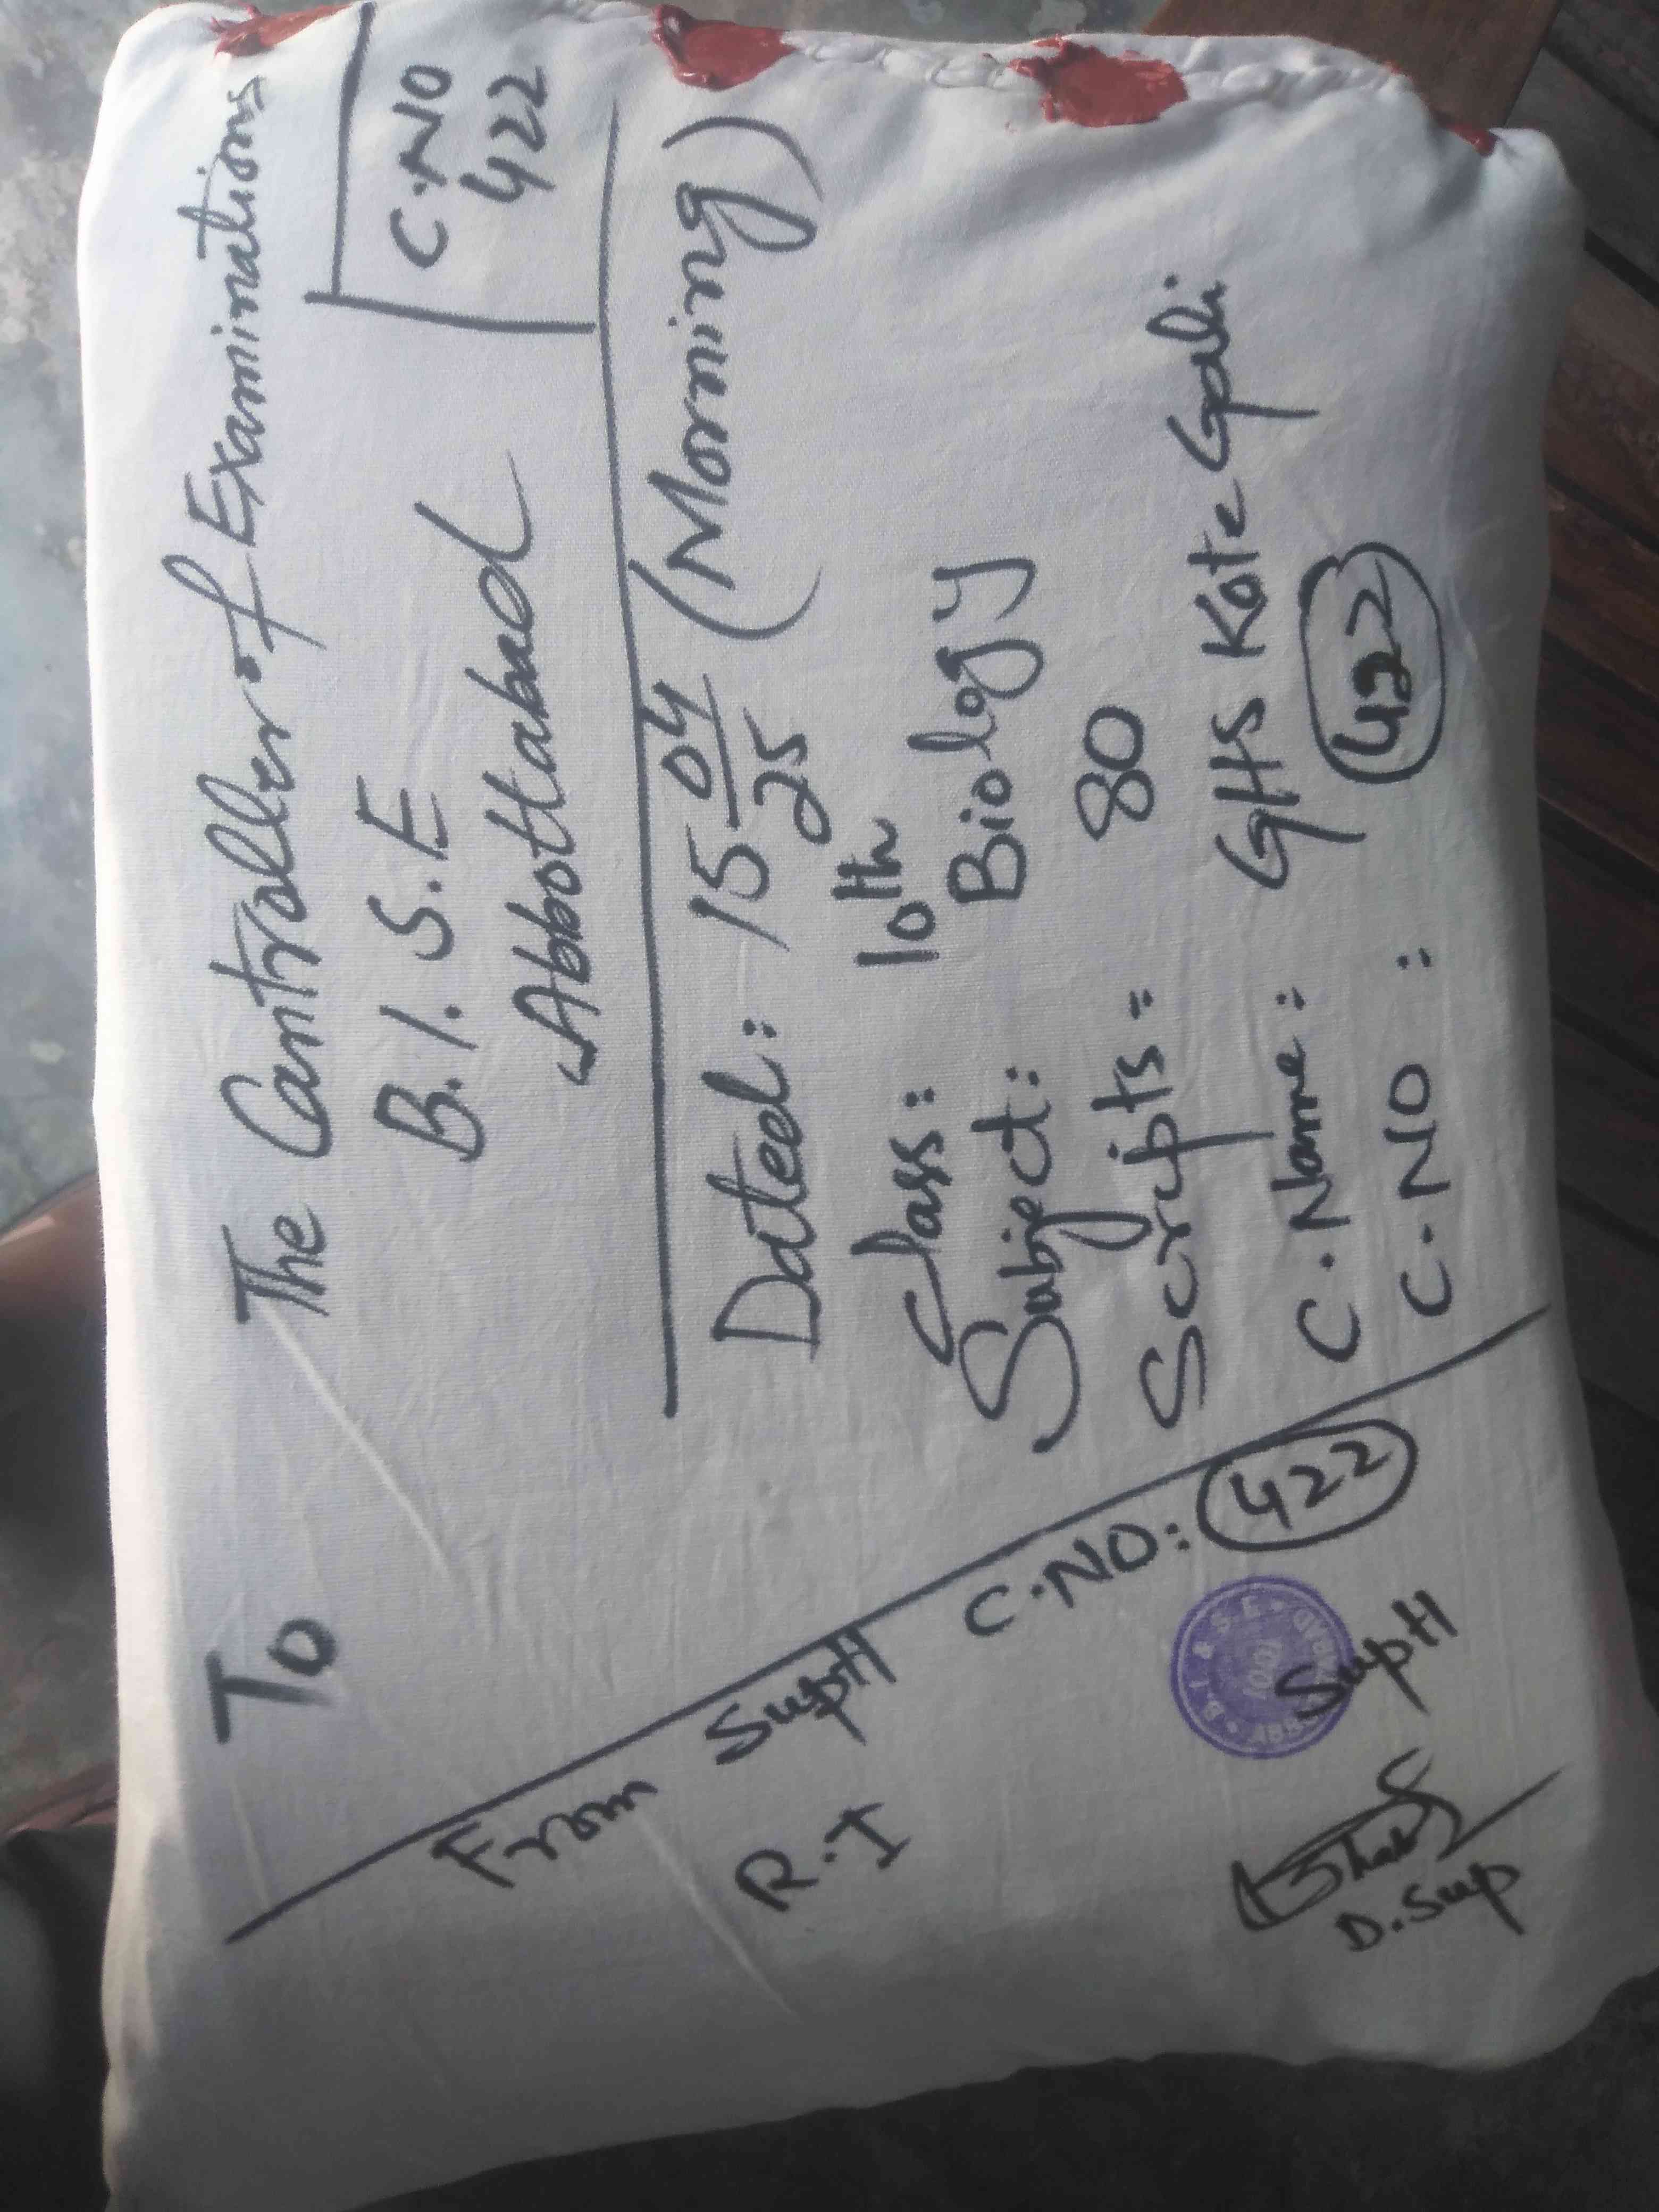 To
The Controller of Examinations
B.I.S.E
Abbottabad
C.NO
422
Dated: 15 04/25 (Morning)
Class: 10th
Subject: Biology
Scripts = 80
C.Name: GHS Kote Gali
C.NO : 422
From Supt C.NO: 422
R.I
B.I & S.E
Supt
D.Sup